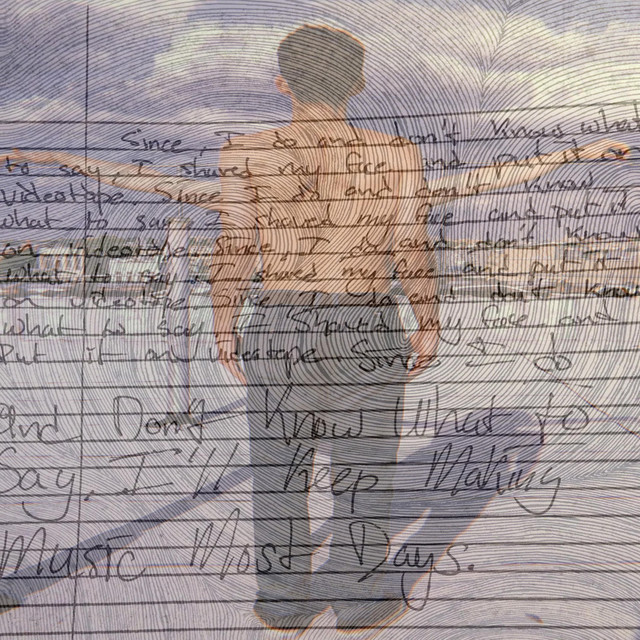 Since, I do and don't know what
to say, I shaved my face and put it on
videotape. Since I do and don't know
what to say I shaved my face and put it
on videotape. Since, I do and don't know
what to say I shaved my face and put it
on videotape Since I do and don't know
what to say I shaved my face and
Put it on videotape. Since I do
And Don't Know What to
Say, I'll Keep Making
Music Most Days.